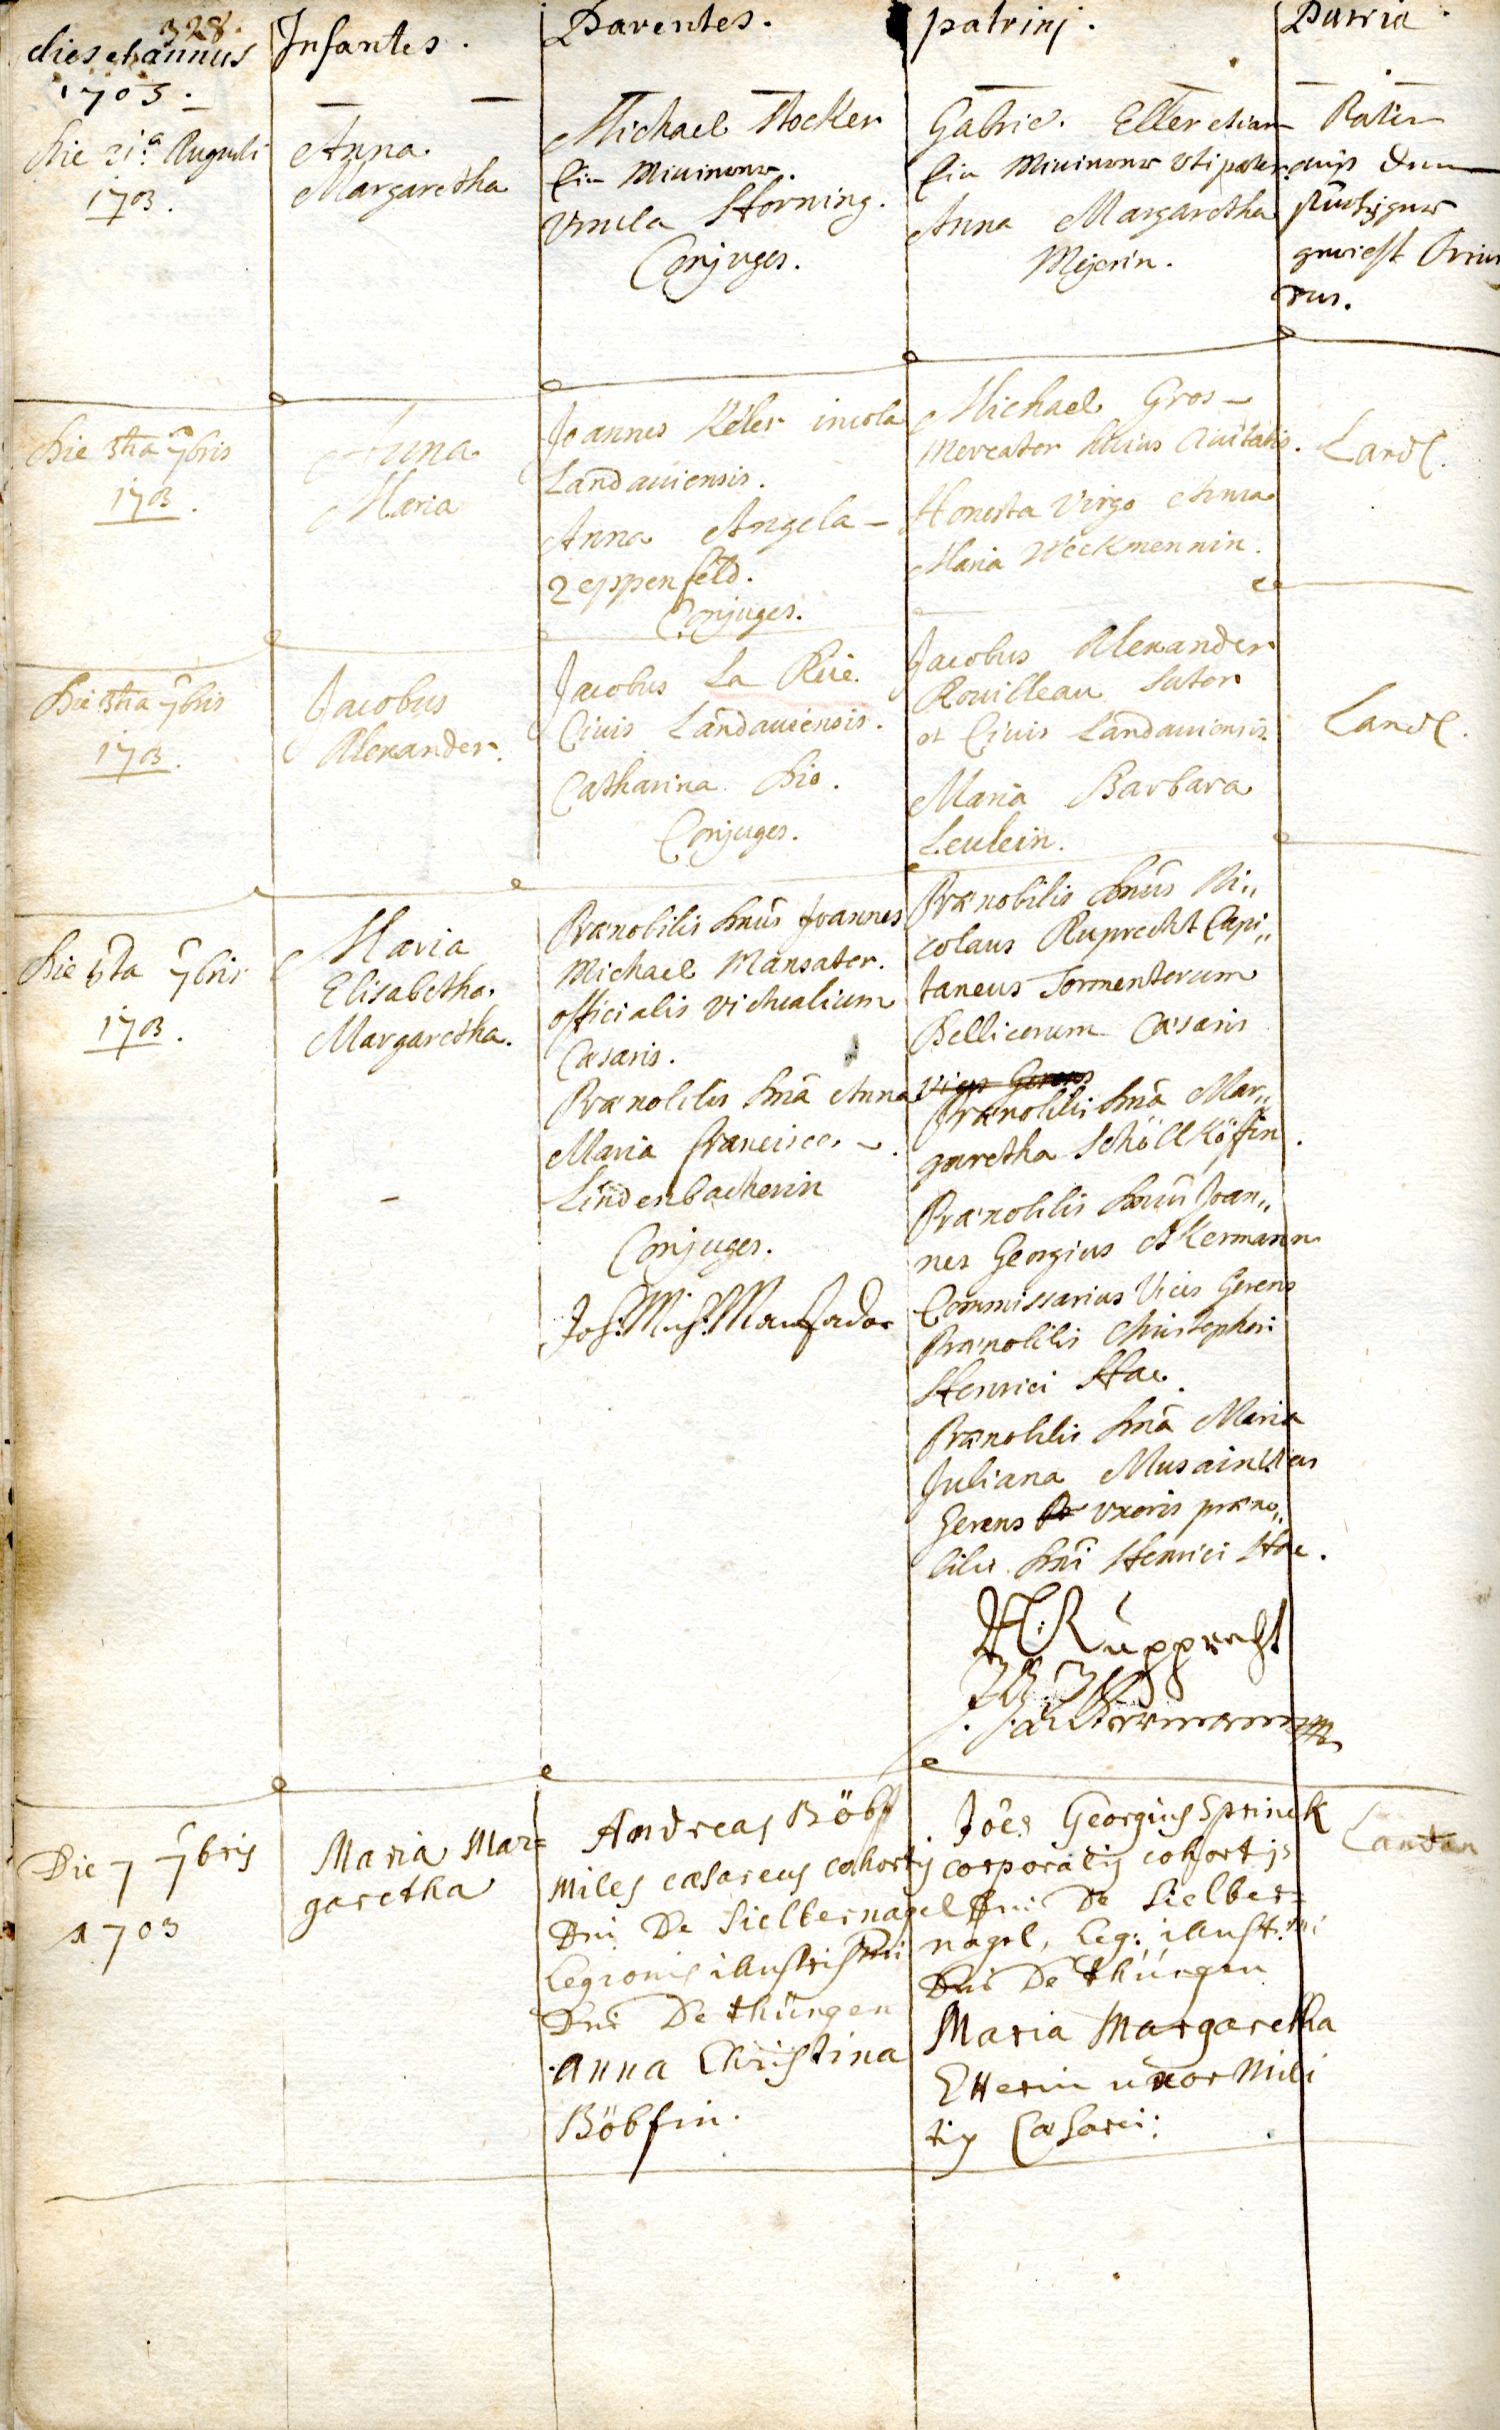 328.
dies et annus
1703.
Infantes.
Parentes.
patrinj.
Patria.
Die 21.a Augusti
1703.
Anna
Margaretha
Michael Stocker
Ein Minirer.
Vrsula Horning.
Conjuges.
Gabriel Eller etiam
Ein Minirer uti pater.
Anna Margaretha
Meÿerin.
Pater
auß dem
gewest
dus.
Die 5ta 7bris
1703.
Anna
Maria
Joannes Keler incola
Landauiensis.
Anna Angela
Zeppenfeld.
Conjuges.
Michael Gros
Mercator huius Ciuitatis.
Honesta Virgo Anna
Maria Weckmennin.
Land.
Die 5ta 7bris
1703.
Jacobus
Alexander.
Jacobus La Rüe.
Ciuis Landauiensis.
Catharina Dio.
Conjuges.
Jacobus Alexander
Rouilleau Sutor
et Ciuis Landauiensis
Maria Barbara
Leulein.
Land.
Die 6ta 7bris
1703.
Maria
Elisabetha
Margaretha.
Prænobilis Dnus Joannes
Michael Mansater.
officialis victualium
Cæsaris.
Prænobilis Dna Anna
Maria francisca
Lindenbacherin
Conjuges.
Joh: Mich: Mansador
Prænobilis Dnus Ni„
colaus Ruprecht Capi„
taneus Tormentorum
Bellicorum Cæsaris
Vices Gerens
Prænobilis Dna Mar„
garetha Schöllköffin.
Prænobilis Dnus Joan„
nes Georgius Akermann
Commissarius Vices Gerens
Prænobilis Christophori
Henrici Hae.
Prænobilis Dna Maria
Juliana Musain Vices
Gerens uxoris præno„
bilis Dni Henrici Hae.
Rupprecht
Die 7 7bris
1703
Maria Mar=
garetha
Andreas Böbs
miles cæsareus cohortis
Dni De Sielbernagel
Legionis illustrissimi
Dni De thüngen
Anna Christina
Böbsin.
Joês Georgius Sprinck
corporalis cohortis
Dni De Sielber=
nagel, Leg: illustr:mi
Dni De thüngen
Maria Margaretha
Etterin uxor mili
tis Cæsarei:
Landau